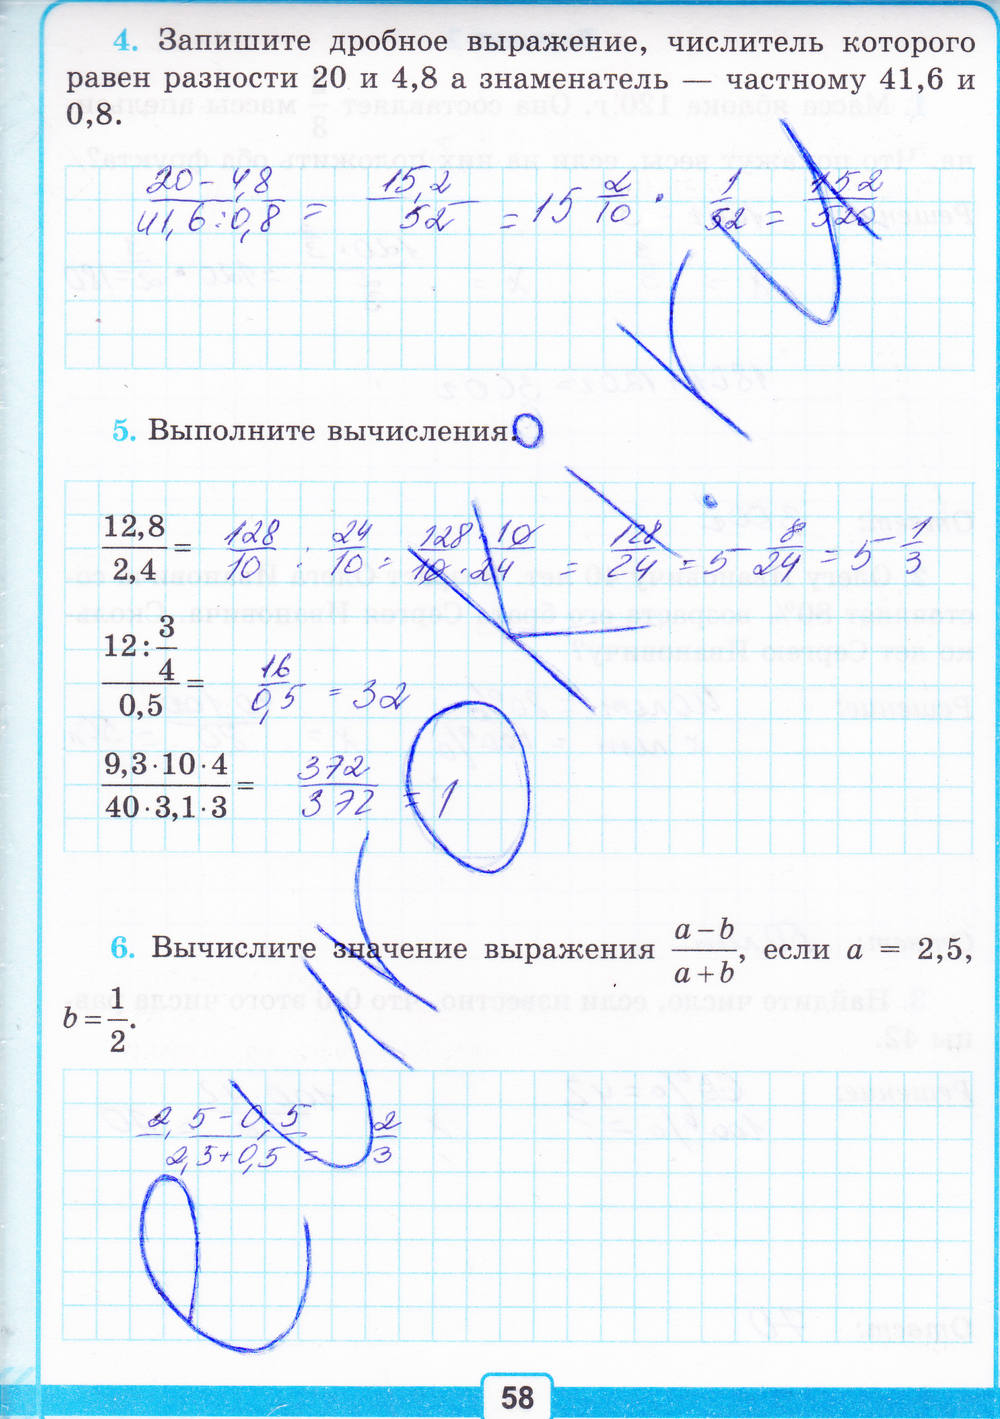 4. Запишите дробное выражение, числитель которого
равен разности 20 и 4,8 а знаменатель — частному 41,6 и
0,8.
20 - 4,8 / 41,6 : 0,8 = 15,2 / 52 = 15 2/10 · 1/52 = 152/520
5. Выполните вычисления.
12,8 / 2,4 = 128/10 : 24/10 = 128 · 10 / 10 · 24 = 128/24 = 5 8/24 = 5 1/3
12 : 3/4 / 0,5 = 16 / 0,5 = 32
9,3 · 10 · 4 / 40 · 3,1 · 3 = 372 / 372 = 1
6. Вычислите значение выражения a – b / a + b, если a = 2,5,
b = 1/2.
2,5 - 0,5 / 2,5 + 0,5 = 2/3
58